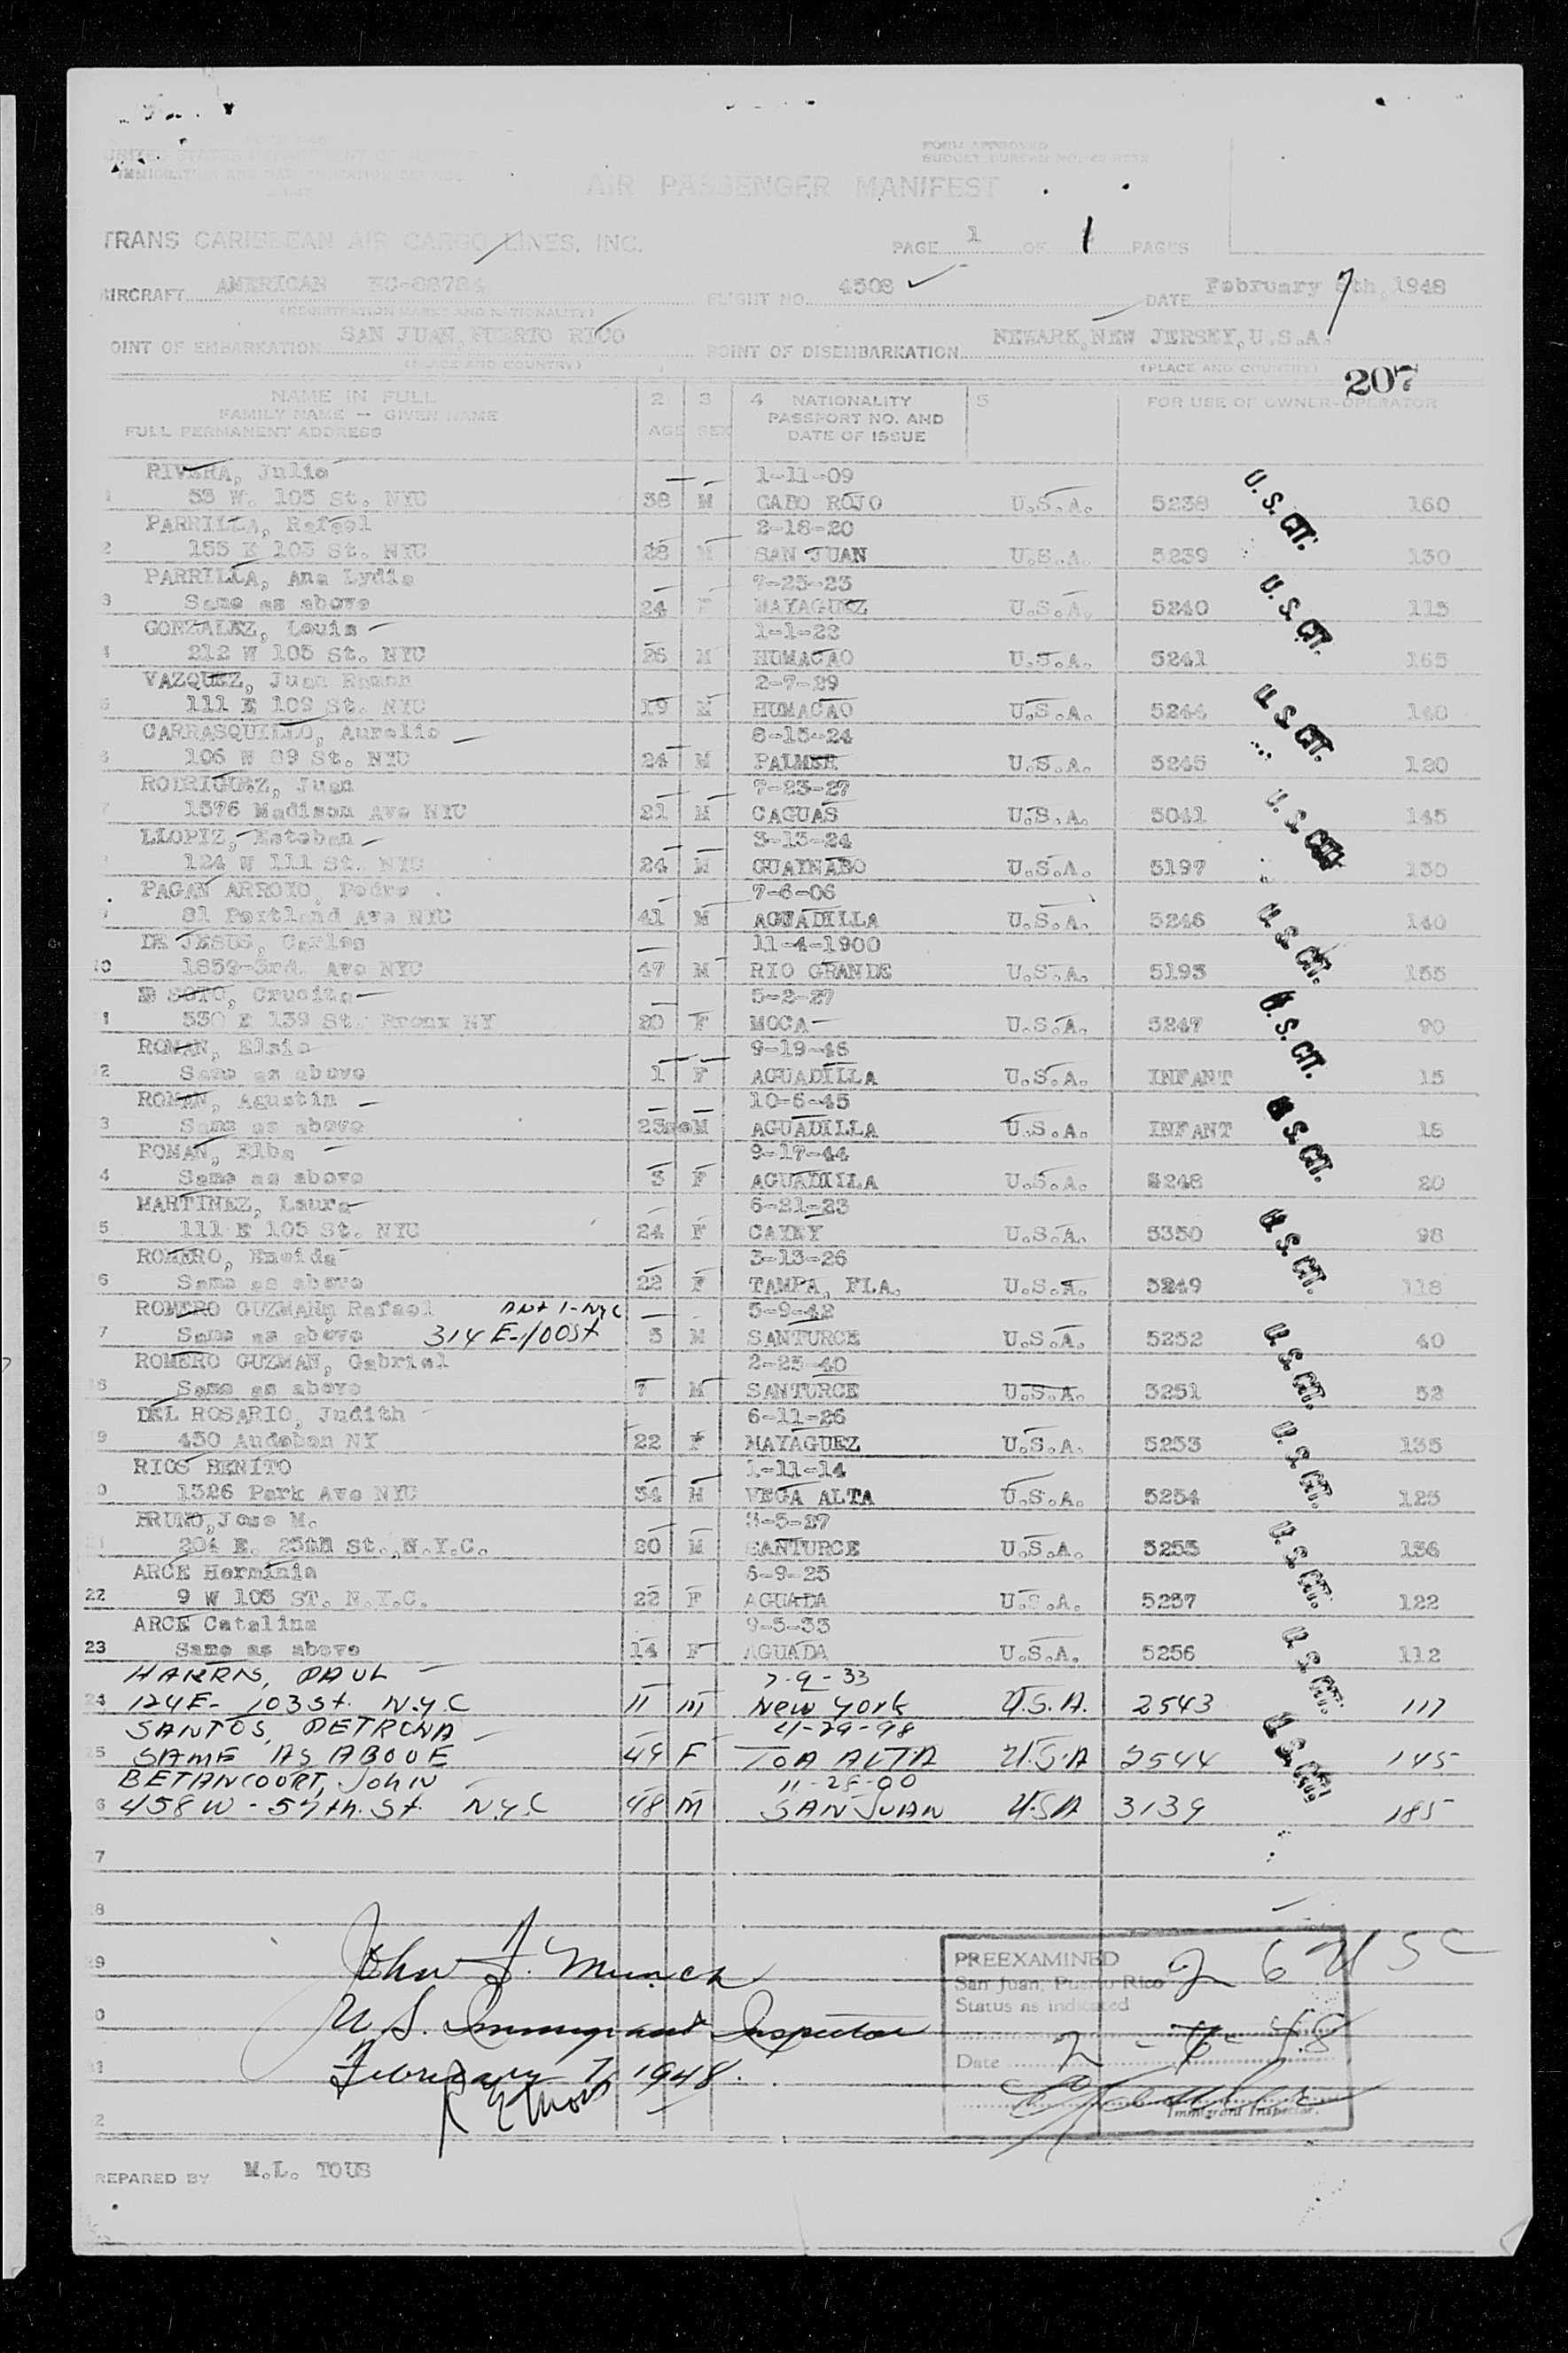 UNITED STATES DEPARTMENT OF JUSTICE
IMMIGRATION AND NATURALIZATION SERVICE
FORM APPROVED
BUDGET BUREAU NO.
AIR PASSENGER MANIFEST
TRANS CARIBBEAN AIR CARGO LINES, INC.
PAGE 1 OF 1 PAGES
AIRCRAFT AMERICAN NC-88784 FLIGHT NO. 4508 DATE February 7th, 1948
(REGISTRATION MARKS AND NATIONALITY)
POINT OF EMBARKATION SAN JUAN, PUERTO RICO POINT OF DISEMBARKATION NEWARK, NEW JERSEY, U.S.A.
(PLACE AND COUNTRY) (PLACE AND COUNTRY)
207
NAME IN FULL 2 3 4 NATIONALITY 5 FOR USE OF OWNER-OPERATOR
FAMILY NAME — GIVEN NAME PASSPORT NO. AND
FULL PERMANENT ADDRESS AGE SEX DATE OF ISSUE
RIVERA, Julio 1-11-09
1 53 W. 103 St. NYC 38 M CABO ROJO U.S.A. 5238 U.S. CIT. 160
PARRILLA, Rafael 2-18-20
2 155 E 103 St. NYC 28 M SAN JUAN U.S.A. 5239 130
PARRILLA, Ana Lydia 7-25-23
3 Same as above 24 F MAYAGUEZ U.S.A. 5240 U.S. CIT. 115
GONZALEZ, Louis 1-1-22
4 212 W 105 St. NYC 26 M HUMACAO U.S.A. 5241 165
VAZQUEZ, Juan Ramon 2-7-29
5 111 E 109 St. NYC 19 M HUMACAO U.S.A. 5244 U.S. CIT. 140
CARRASQUILLO, Aurelio 8-15-24
6 106 W 89 St. NYC 24 M PALMER U.S.A. 5245 120
RODRIGUEZ, Juan 7-23-27
7 1576 Madison Ave NYC 21 M CAGUAS U.S.A. 5041 U.S. CIT. 145
LLOPIZ, Esteban 3-13-24
124 W 111 St. NYC 24 M GUAYNABO U.S.A. 5197 130
PAGAN ARROYO, Pedro 7-6-06
81 Portland Ave NYC 41 M AGUADILLA U.S.A. 5246 U.S. CIT. 140
DE JESUS, Carlos 11-4-1900
10 1859-3rd. Ave NYC 47 M RIO GRANDE U.S.A. 5193 155
SOTO, Crucita 5-2-27
530 E 139 St. Bronx NY 20 F MOCA U.S.A. 5247 U.S. CIT. 90
ROMAN, Elsie 9-19-46
2 Same as above 1 F AGUADILLA U.S.A. INFANT 15
ROMAN, Agustin 10-6-45
3 Same as above 23mos M AGUADILLA U.S.A. INFANT U.S. CIT. 18
ROMAN, Elba 9-17-44
4 Same as above 3 F AGUADILLA U.S.A. 5248 20
MARTINEZ, Laura 6-21-23
5 111 E 103 St. NYC 24 F CAYEY U.S.A. 5350 U.S. CIT. 98
ROMERO, Eneida 3-13-26
6 Same as above 22 F TAMPA, FLA. U.S.A. 5249 118
ROMERO GUZMAN, Rafael Apt 1-NYC 5-9-42
7 Same as above 314 E-100St 5 M SANTURCE U.S.A. 5252 U.S. CIT. 40
ROMERO GUZMAN, Gabriel 2-25-40
8 Same as above 7 M SANTURCE U.S.A. 5251 52
DEL ROSARIO, Judith 6-11-26
9 450 Audoban NY 22 F MAYAGUEZ U.S.A. 5253 U.S. CIT. 135
RIOS BENITO 1-11-14
0 1326 Park Ave NYC 34 M VEGA ALTA U.S.A. 5254 125
BRUNO, Jose M. 3-5-27
21 204 E. 25th St., N.Y.C. 20 M SANTURCE U.S.A. 5255 U.S. CIT. 136
ARCE Herminia 6-9-25
22 9 W 103 ST. N.Y.C. 22 F AGUADA U.S.A. 5257 122
ARCE Catalina 9-5-33
23 Same as above 14 F AGUADA U.S.A. 5256 U.S. CIT. 112
HARRIS, PAUL 7-9-33
24 124 E- 103 St. N.Y.C 11 M New York U.S.A. 2543 117
SANTOS, PETRONA 4-29-98
25 SAME AS ABOVE 49 F TOA ALTA U.S.A 2544 U.S. CIT. 145
BETANCOURT, JOHN 11-28-00
6 458 W - 57th. St. N.Y.C 48 M SAN JUAN U.S.A 3139 185
7
8
9
John F. Munch
0
U.S. Immigrant Inspector
February 7, 1948.
2
PREEXAMINED 26 USC
San Juan, Puerto Rico
Status as indicated
Date 2-7-48
Immigrant Inspector.
PREPARED BY M.L. TOUS